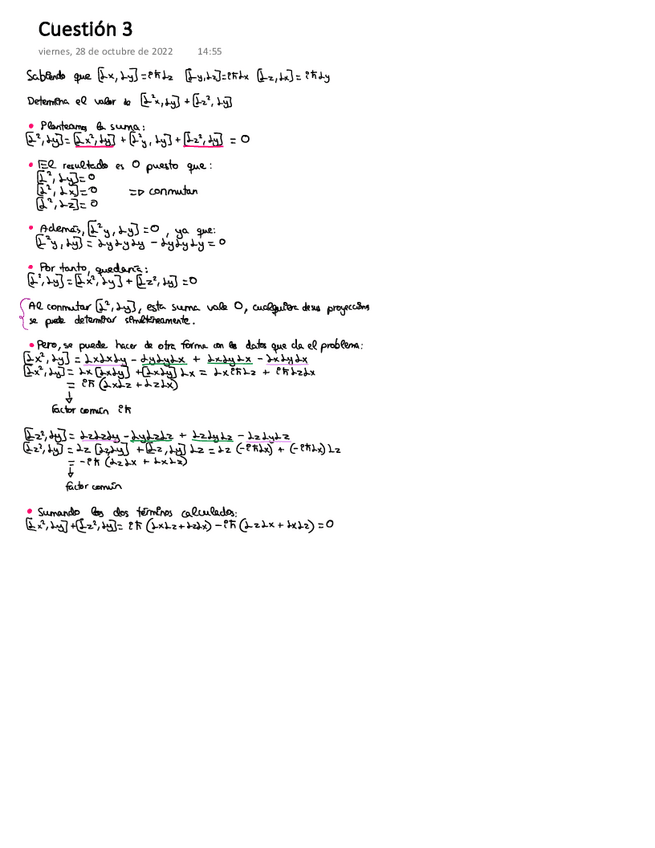 Cuestión 3
viernes, 28 de octubre de 2022 14:55
Sabiendo que [Lx, Ly]=iħLz [Ly,Lz]=iħLx [Lz,Lx]=iħLy
Determina el valor de [L²x, Ly] + [Lz², Ly]
• Planteamos la suma:
[L², Ly]=[Lx², Ly] + [L²y, Ly] + [Lz², Ly] = 0
• El resultado es 0 puesto que:
[L², Ly]=0
[L², Lx]=0 => conmutan
[L², Lz]=0
• Además, [L²y, Ly]=0, ya que:
[L²y, Ly] = LyLyLy - LyLyLy = 0
• Por tanto, quedaría:
[L², Ly]=[Lx², Ly] + [Lz², Ly] =0
Al conmutar [L², Ly], esta suma vale 0, cualquiera de sus proyecciones
se puede determinar simultáneamente.
• Pero, se puede hacer de otra forma con los datos que da el problema:
[Lx², Ly] = LxLxLy - LyLyLx + LxLyLx - LxLyLx
[Lx², Ly] = Lx [LxLy] + [LxLy] Lx = LxiħLz + iħLzLx
= iħ (LxLz + LzLx)
↓
factor común iħ
[Lz², Ly] = LzLzLy - LyLzLz + LzLyLz - LzLyLz
[Lz², Ly] = Lz [LzLy] + [Lz, Ly] Lz = Lz (-iħLx) + (-iħLx) Lz
= -iħ (LzLx + LxLz)
↓
factor común
• Sumando los dos términos calculados:
[Lx², Ly] +[Lz², Ly]= iħ (LxLz+LzLx) -iħ (LzLx + LxLz) =0